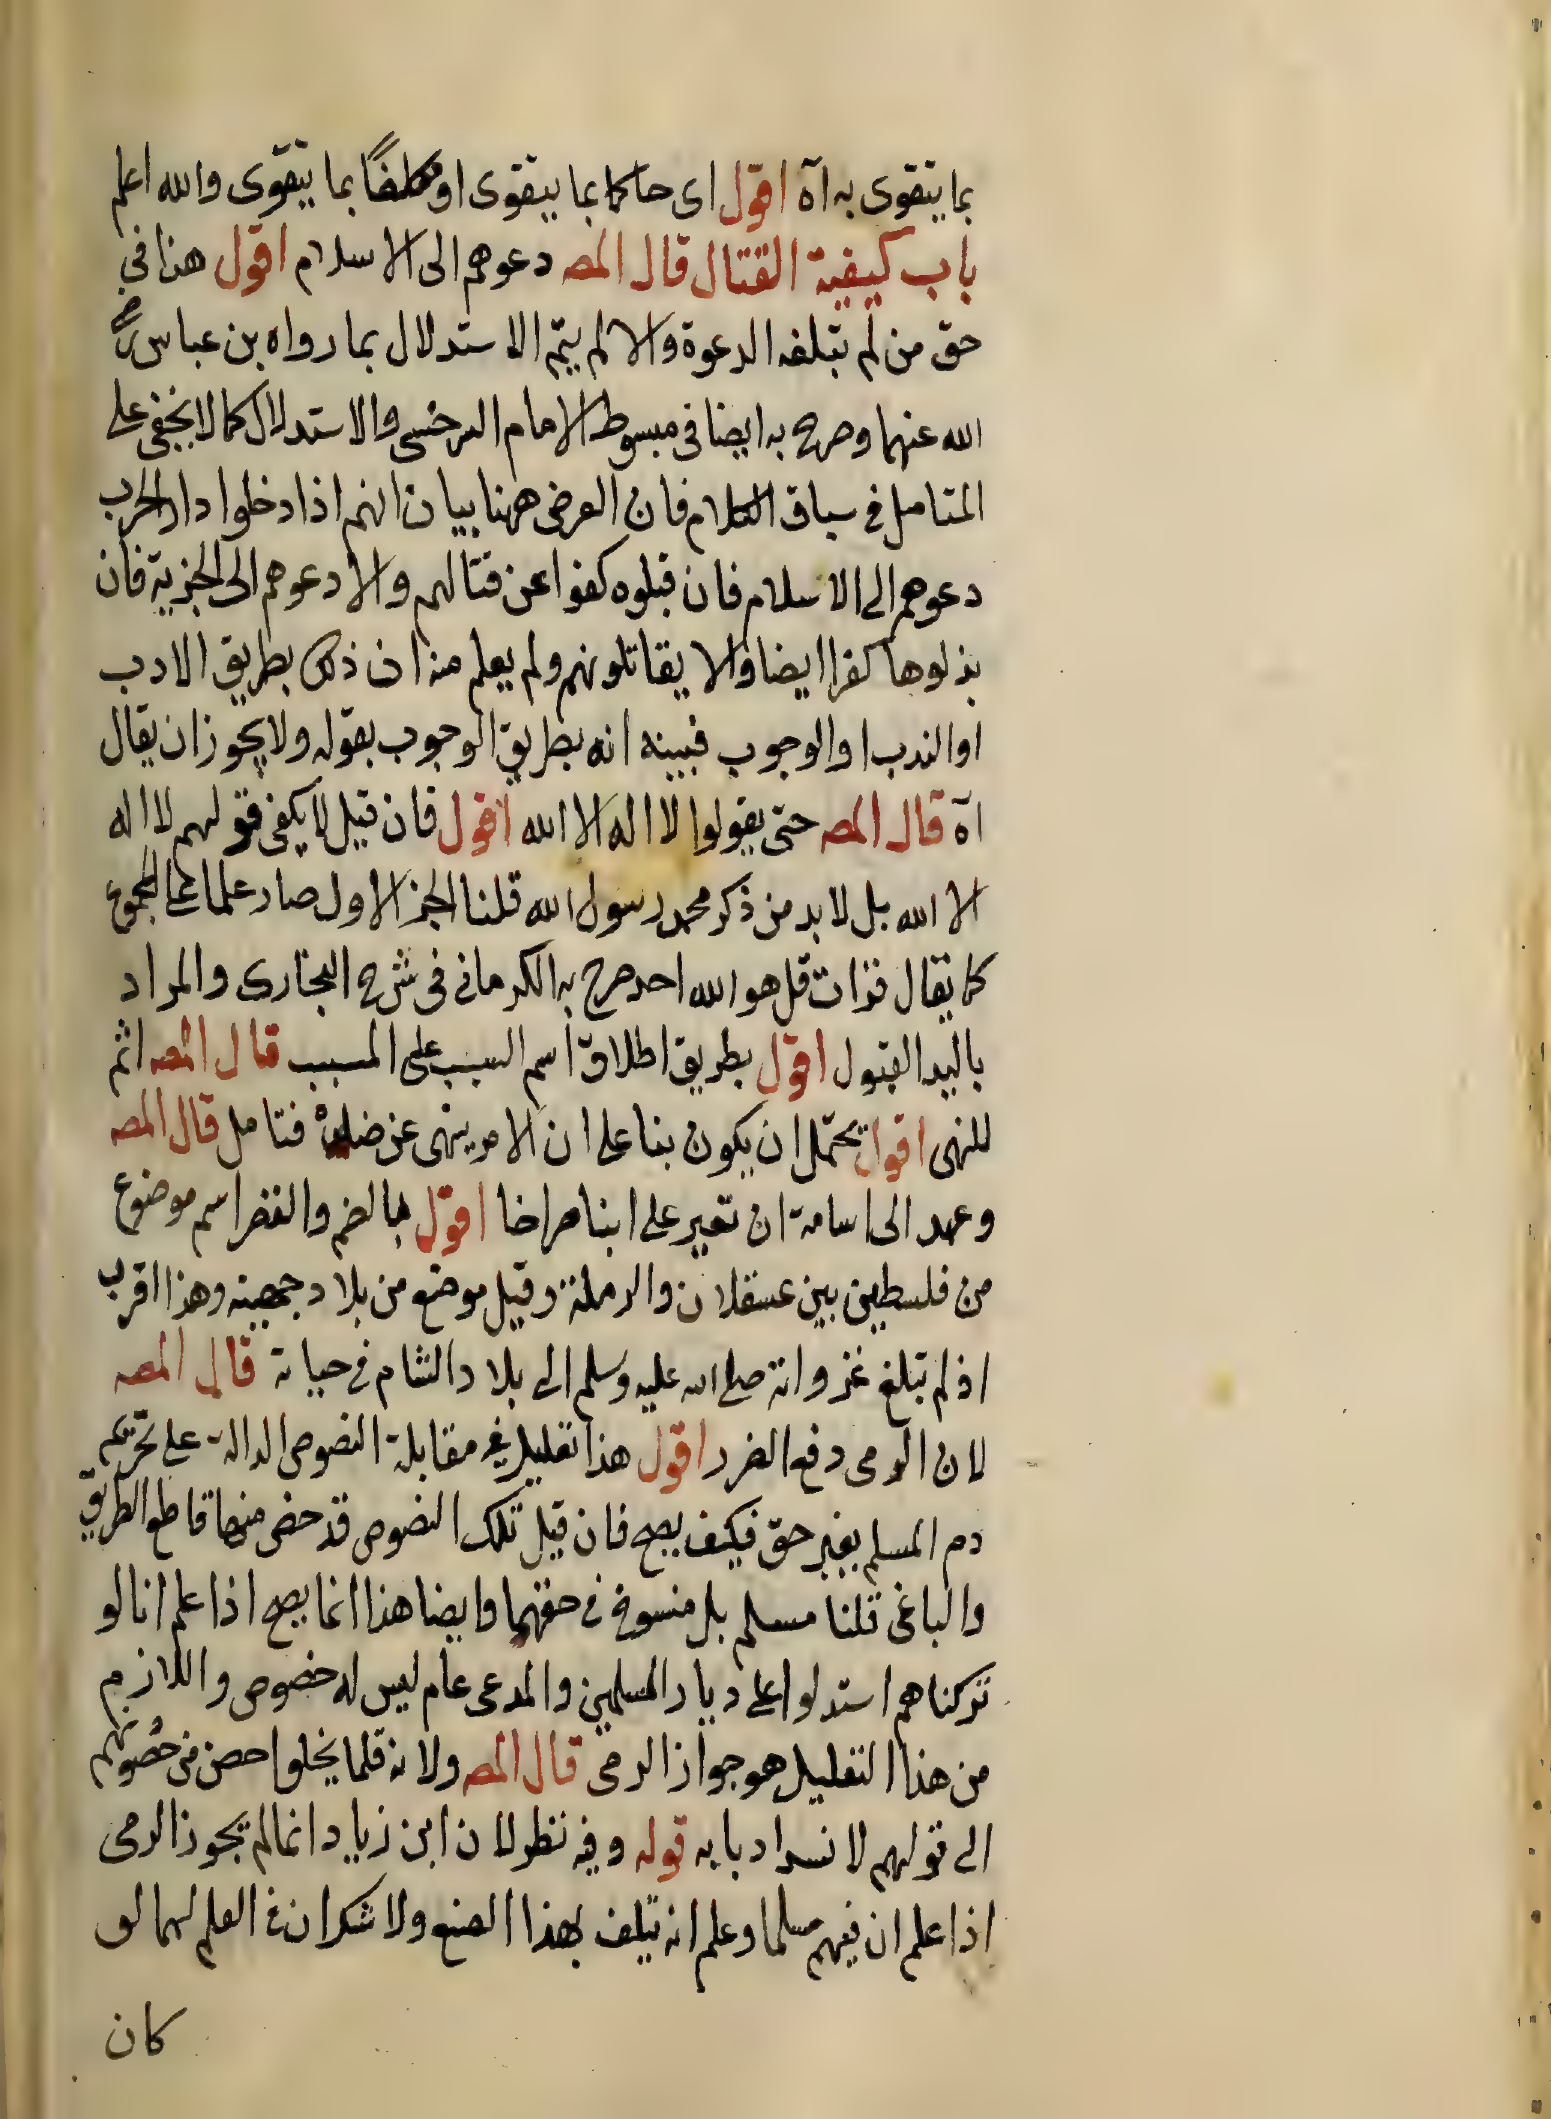 بما يتقوى به آه اقول اى حاكما بما يتقوى او مكلفا بما يتقوى والله اعلم
باب كيفية القتال قال المصـ دعوهم الى الاسلام اقول هذا فى
حق من لم تبلغه الدعوة والا لم يتم الاستدلال بما رواه بن عباس رضى
الله عنهما وصرح به ايضا فى مبسوط الامام السرخسى والاستدلال كما لا يخفى على
المتامل فى سباق الكلام فان الغرض ههنا بيان انهم اذا دخلوا دار الحرب
دعوهم الى الاسلام فان قبلوه كفوا عن قتالهم والا دعوهم الى الجزية فان
بذلوها كفوا ايضا والا يقاتلونهم ولم يعلم منه ان ذلك بطريق الادب
او الندب او الوجوب فبينه انه بطريق الوجوب بقوله ولا يجوز ان يقال
آه قال المصـ حتى يقولوا لا اله الا الله اقول فان قيل لا يكفى قولهم لا اله
الا الله بل لا بد من ذكر محمد رسول الله قلنا الجز الاول صار علما على المجموع
كما يقال قرات قل هو الله احد صرح به الكرمانى فى شرح البخارى والمراد
باليد القبول اقول بطريق اطلاق اسم السبب على المسبب قال المصـ اثم
للنهى اقول يحتمل ان يكون بنا على ان الامر ينهى عن ضده فتامل قال المصـ
وعهد الى اسامة ان تغير على ابنا صراخا اقول بالضم والقصر اسم موضوع
من فلسطين بين عسقلان والرملة وقيل موضع من بلاد جهينة وهذا اقرب
اذ لم تبلغ غزواته صلى الله عليه وسلم الى بلاد الشام فى حياته قال المصـ
لان الرمى دفع الضرر اقول هذا تعليل فى مقابلة النصوص الدالة على تحريم
دم المسلم بغير حق فكيف يصح فان قيل تلك النصوص قد خص منها قاطع الطريق
والباغى قلنا مسلم بل منسوخ فى حقهما وايضا هذا انما يصح اذا علم انا لو
تركناهم استدلوا على ديار المسلمين والمدعى عام ليس له خصوص واللازم
من هذا التعليل هو جواز الرمى قال المصـ ولانه قلما يخلوا حصن من حصونهم
الى قولهم لانسداد بابه قوله وفيه نظر لان ابن زياد انما لم يجوز الرمى
اذا علم ان فيهم مسلما وعلم انه تيلف بهذا الصنع ولا شك ان فى العلم لهما لو
كان